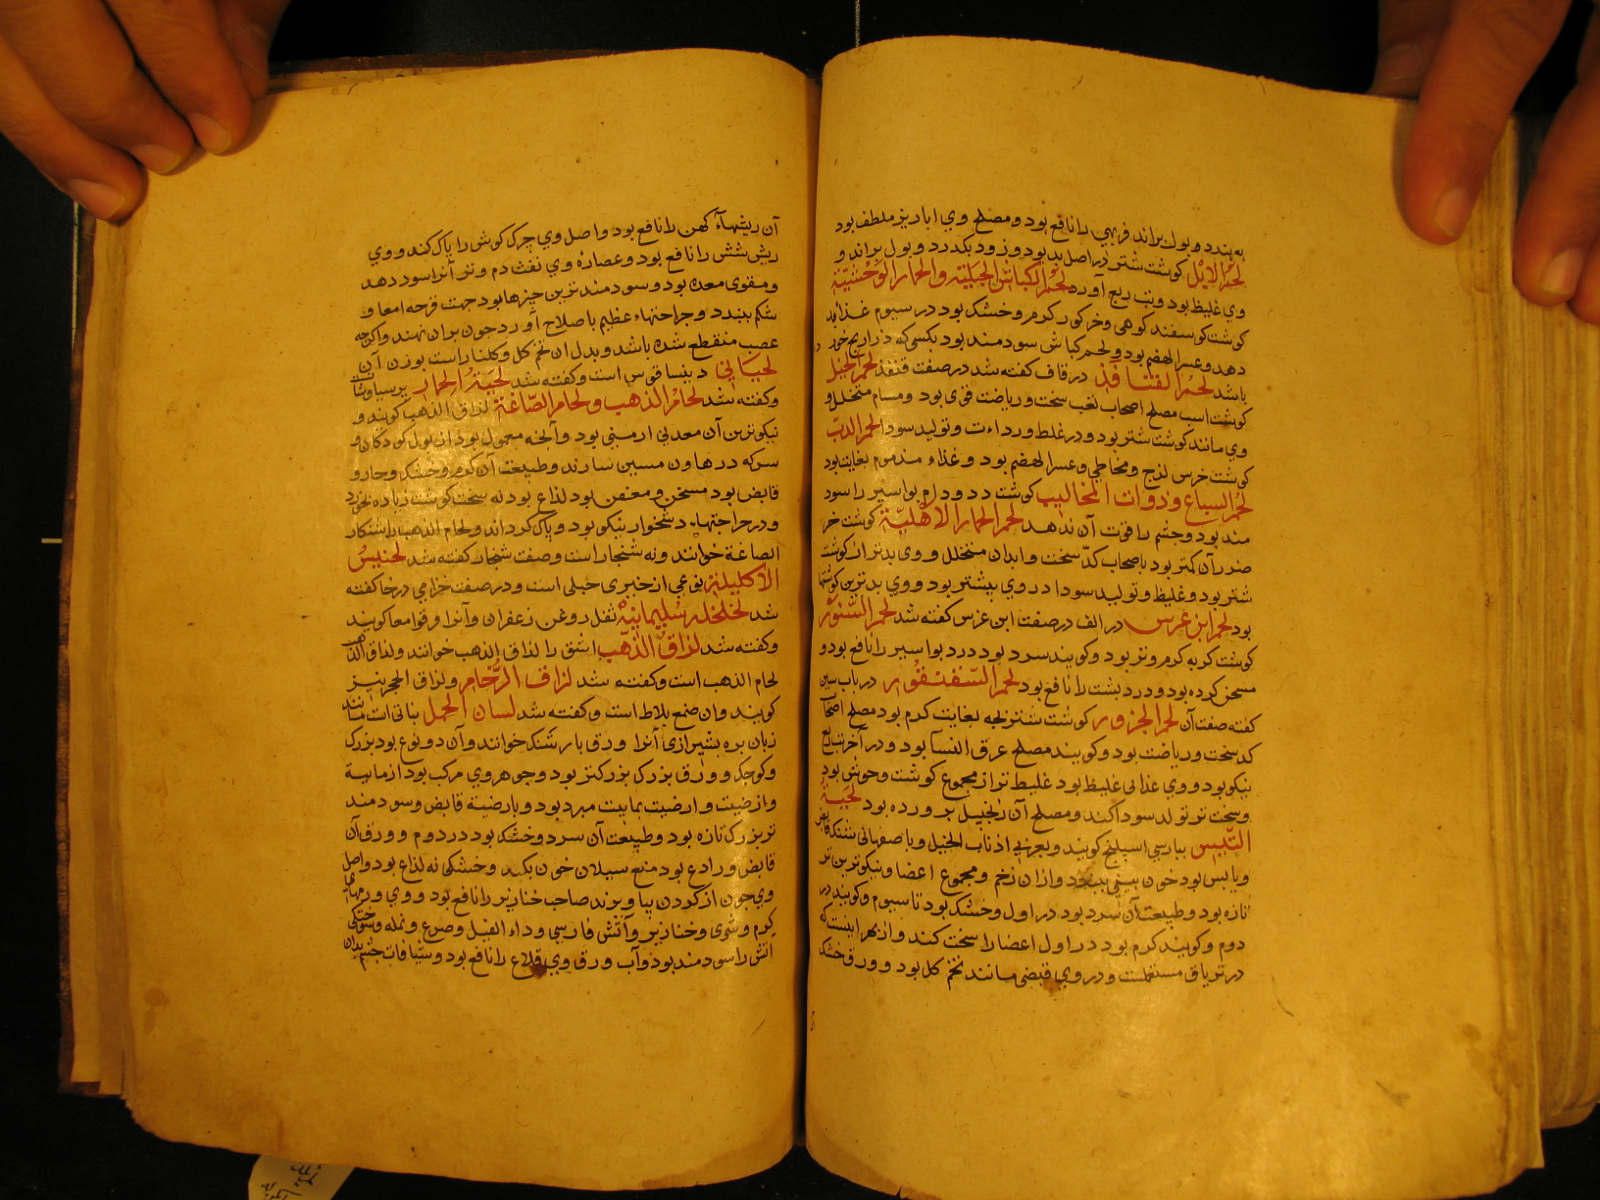 به بندد و بول براند فربهی را نافع بود و مصلح وی ابازیر ملطف بود
لحم الابل کوشت شتر در اصل بد بود و زود بکدرد و بول براند و
وی غلیظ بود و تب ربع آورد لحم الکباش الجبلیة والحمار الوحشیة
کوشت کوسفند کوهی و خر کور کرم و خشک بود در سیوم غذا بد
دهد و عسر الهضم بود و لحم کباش سودمند بود بکسی که ذراریح خورد
باشد لحم القنافذ در قاف کفته شد در صفت قنفذ لحم الخیل
کوشت اسپ مصلح اصحاب تعب سخت و ریاضت قوی بود و مسام متخلخل و
وی مانند کوشت شتر بود و در غلظ و رداءت و تولید سودا لحم الدب
کوشت خرس لزج و مخاطی و عسر الهضم بود و غذاء مذموم بغایت بود
لحم السباع و ذوات المخالیب کوشت دد و دام بواسیر را سود
مند بود و چشم را قوت آن ندهد لحم الحمار الاهلیة کوشت خر
ضرر آن کمتر بود باصحاب کد سخت و ابدان متخلخل و وی بدتر از کوشت
شتر بود و غلیظ و تولید سودا در وی بیشتر بود و وی بدترین کوشتها
بود لحم ابن عرس در الف در صفت ابن عرس کفته شد لحم السنور
کوشت کربه کرم و تر بود و کویند سرد بود درد بواسیر را نافع بود و
مسخن کرده بود و درد پشت را نافع بود لحم السقنقور در باب سین
کفته صفت آن لحم الجزور کوشت شتر بچه بغایت کرم بود مصلح اصحاب
کد سخت و ریاضت بود و کویند مصلح عرق النسا بود و در آخر تب ربع
نیکو بود و وی غذائی غلیظ بود غلیظ تر از مجموع کوشت وحوش بود
و سخت تر تولد سودا کند و مصلح آن زنجبیل پرورده بود لحیة
التیس بپارسی اسپلنج کویند و بعربی اذناب الخیل و باصفهانی شنک قابض
و یابس بود خون بینی ببندد و از آن زخم و مجموع اعضا و نیکوترین تر
تازه بود و طبیعت آن سرد بود در اول و خشک بود تا سیوم و کویند در
دوم و کویند کرم بود در اول اعضا را سخت کند و از بهر اینست که
در تریاق مستعملست و در وی قبضی مانند تخم کل بود و ورق خشک
آن ریشهاء کهن را نافع بود و اصل وی چرک کوش را پاک کند و وی
ریش شش را نافع بود و عصاره وی نفث دم و نزف آنرا سود دهد
و مقوی معده بود و سودمندترین چیزها بود جهت قرحه امعا و
شکم ببندد و جراحتهاء عظیم باصلاح آورد چون بران نهند و اکرچه
عصب منقطع شده باشد و بدل آن تخم کل و کلنار است بوزن آن
لحیانی دیپساقوس است و کفته شد لحیة الحمار پرسیاوشان است
و کفته شد لحام الذهب و لحام الصاغة لزاق الذهب کویند و
نیکوترین آن معدنی ارمینی بود و آنچه معمول بود از بول کودکان و
سرکه در هاون مسین سازند و طبیعت آن کرم و خشک و حاد و
قابض بود مسخن و معفن بود لذاع بود نه سخت کوشت زیاده بخورد
و در جراحتهاء دشخوار نیکو بود و پاک کرداند و لحام الذهب را شنکار
الصاغة خوانند و نه شنجار است و صفت شنجار کفته شد لحنیس
الاکلیلة نوعی از خیری جبلی است و در صفت خزامی در خا کفته
شد لخلخه سلیمانیة ثفل روغن زعفران و آنرا و قوامعا کویند
و کفته شد لزاق الذهب اشق را لزاق الذهب خوانند و لزاق الذهب
لحام الذهب است و کفته شد لزاق الرخام و لزاق الحجر نیز
کویند و آن صمغ بلاط است و کفته شد لسان الحمل نباتی است مانند
زبان بره بشیرازی آنرا ورق بارتنک خوانند و آن دو نوع بود بزرک
و کوچک و ورق بزرک بزرکتر بود و جوهر وی مرکب بود از مایية
و ارضیت و ارضیت بمایيت مبرد بود و بارضیة قابض و سودمند
تر بزرک تازه بود و طبیعت آن سرد و خشک بود در دوم و ورق آن
قابض و رادع بود منع سیلان خون بکند و خشکی نه لذاع بود و اصل
وی چون از کردن بیاویزند صاحب خنازیر را نافع بود و وی ورمهای
کرم و شری و خنازیر و آتش فارسی و داء الفیل و صرع و نمله و سوختکی
آتش را سودمند بود و آب ورق وی قلاع را نافع بود و شیافات چشم بدان